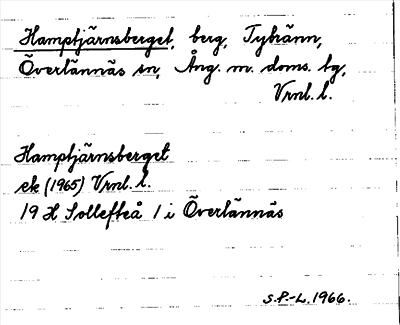 Hamptjärnsberget, berg, Tyhänn,
Överlännäs sn, Ång. m. doms. tg,
Vrnl. l.
Hamptjärnsberget
ek (1965) Vrnl. l.
19 H Sollefteå 1 i Överlännäs
S.P.-L. 1966.